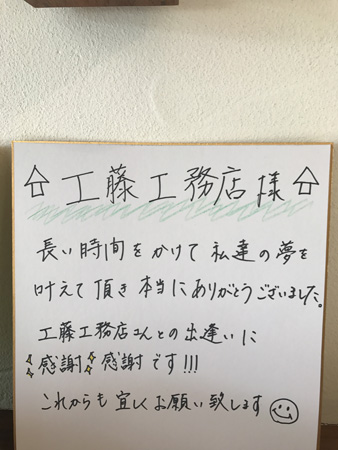 工藤工務店様
長い時間をかけて私達の夢を
叶えて頂き本当にありがとうございました。
工藤工務店さんとの出逢いに
感謝感謝です!!!
これからも宜しくお願い致します